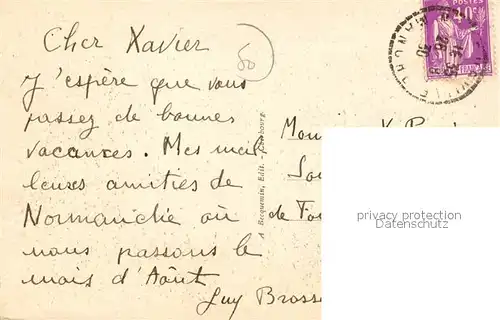 Cher Xavier
J'espère que vous
passez de bonnes
vacances. Mes meil
leures amitiés de
Normandie où
nous passons le
mois d'Août
Guy Bross
50
A Becquemin, Edit. - Cherbourg
POSTES
40c
FRANÇAISE
MANCHE
privacy protection
Datenschutz